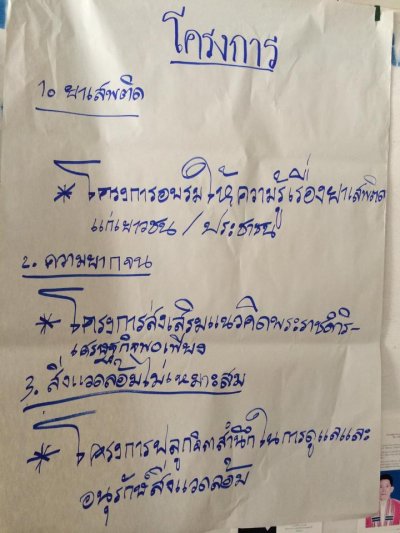 โครงการ
1. ยาเสพติด
* โครงการอบรมให้ความรู้เรื่องยาเสพติด
แก่เยาวชน / ประชาชน
2. ความยากจน
* โครงการส่งเสริมแนวคิดพระราชดำริ-
เศรษฐกิจพอเพียง
3. สิ่งแวดล้อมไม่เหมาะสม
* โครงการปลูกจิตสำนึกในการดูแลและ
อนุรักษ์สิ่งแวดล้อม